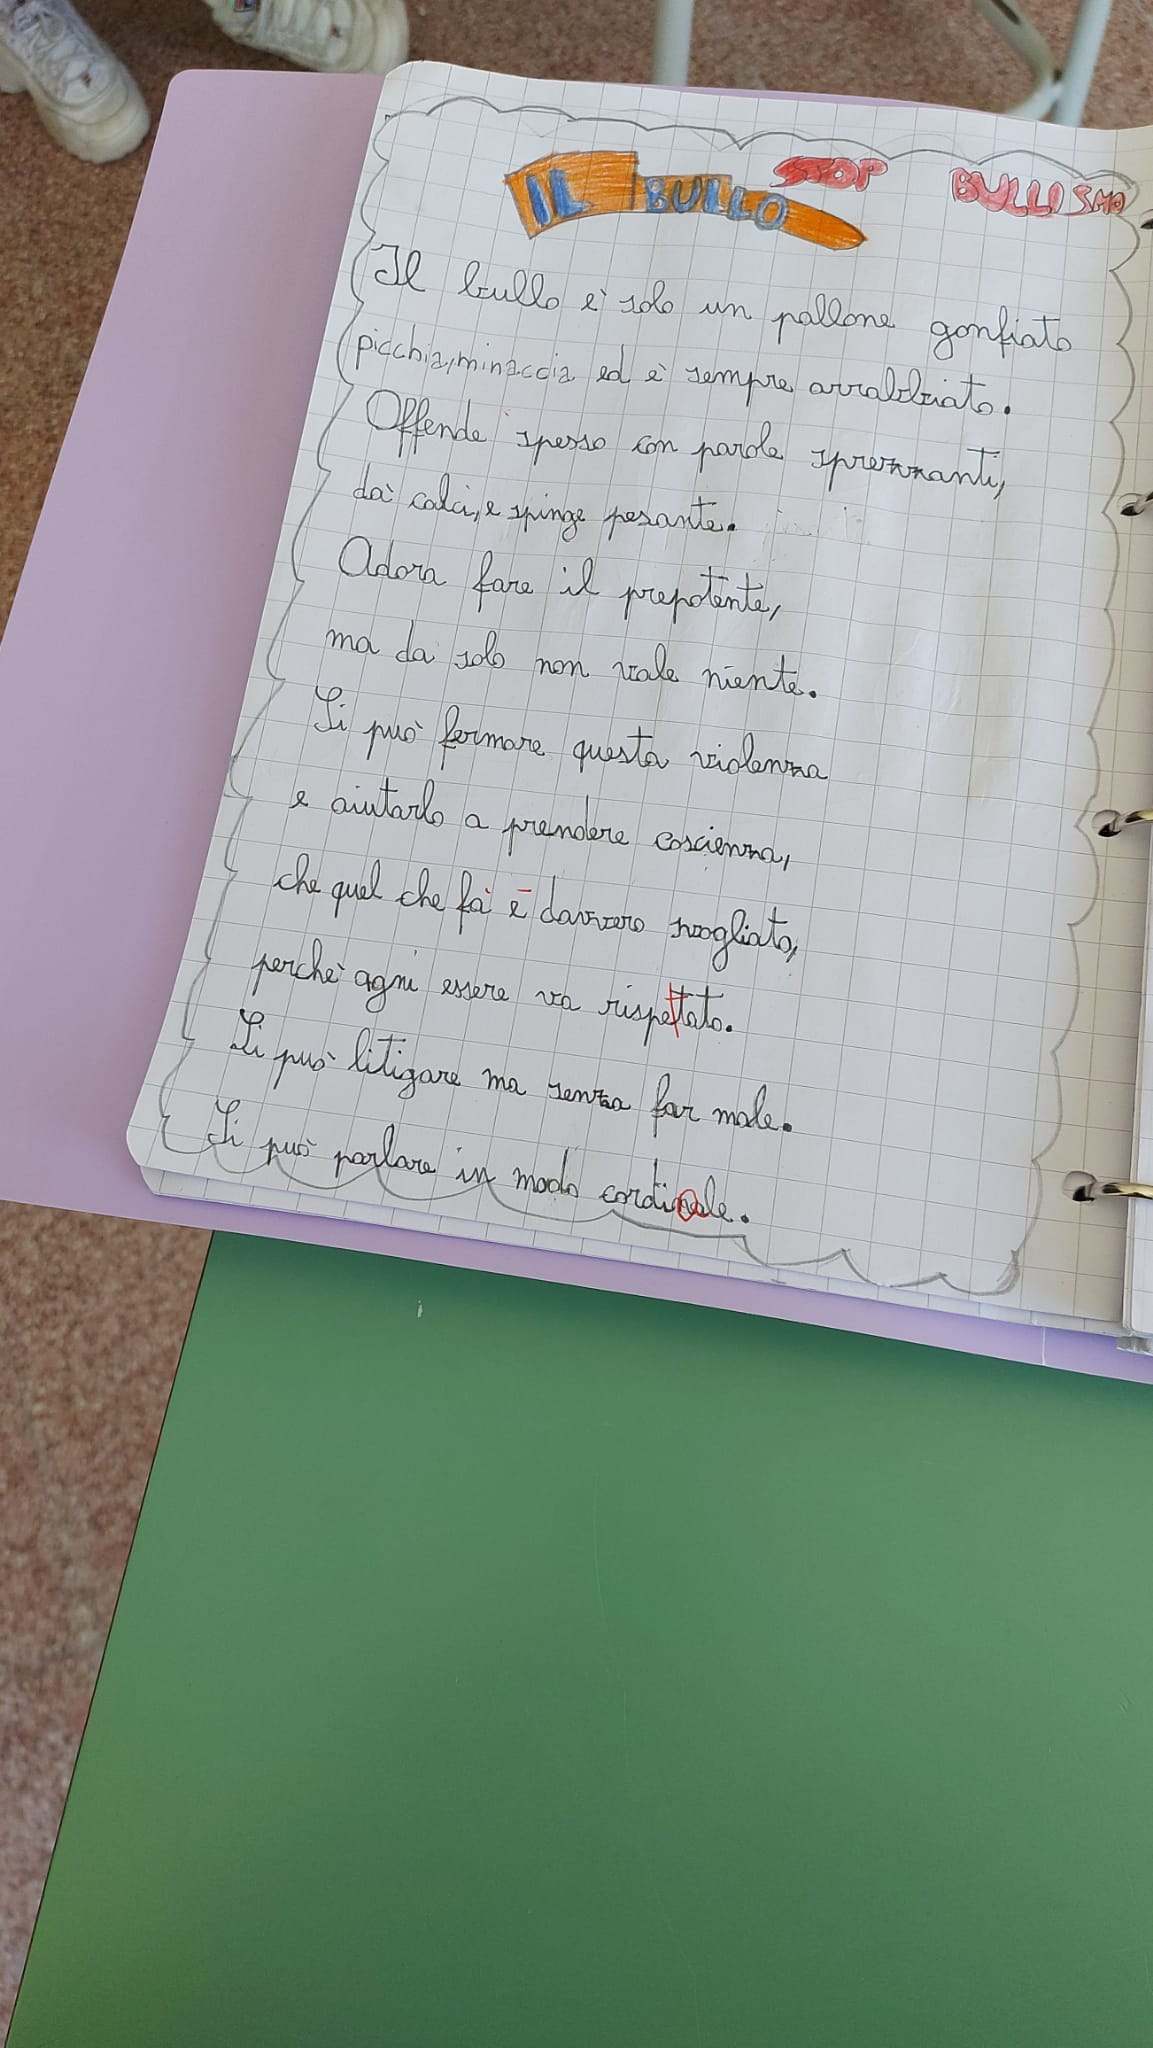 IL BULLO STOP BULLISMO
Il bullo è solo un pallone gonfiato
picchia, minaccia ed è sempre arrabbiato.
Offende spesso con parole sprezzanti,
dà calci, e spinge pesante.
Adora fare il prepotente,
ma da solo non vale niente.
Si può fermare questa violenza
e aiutarlo a prendere coscienza,
che quel che fà è davvero svogliato,
perchè agni essere va rispettato.
Si può litigare ma senza far male.
Si può parlare in modo cordinale.